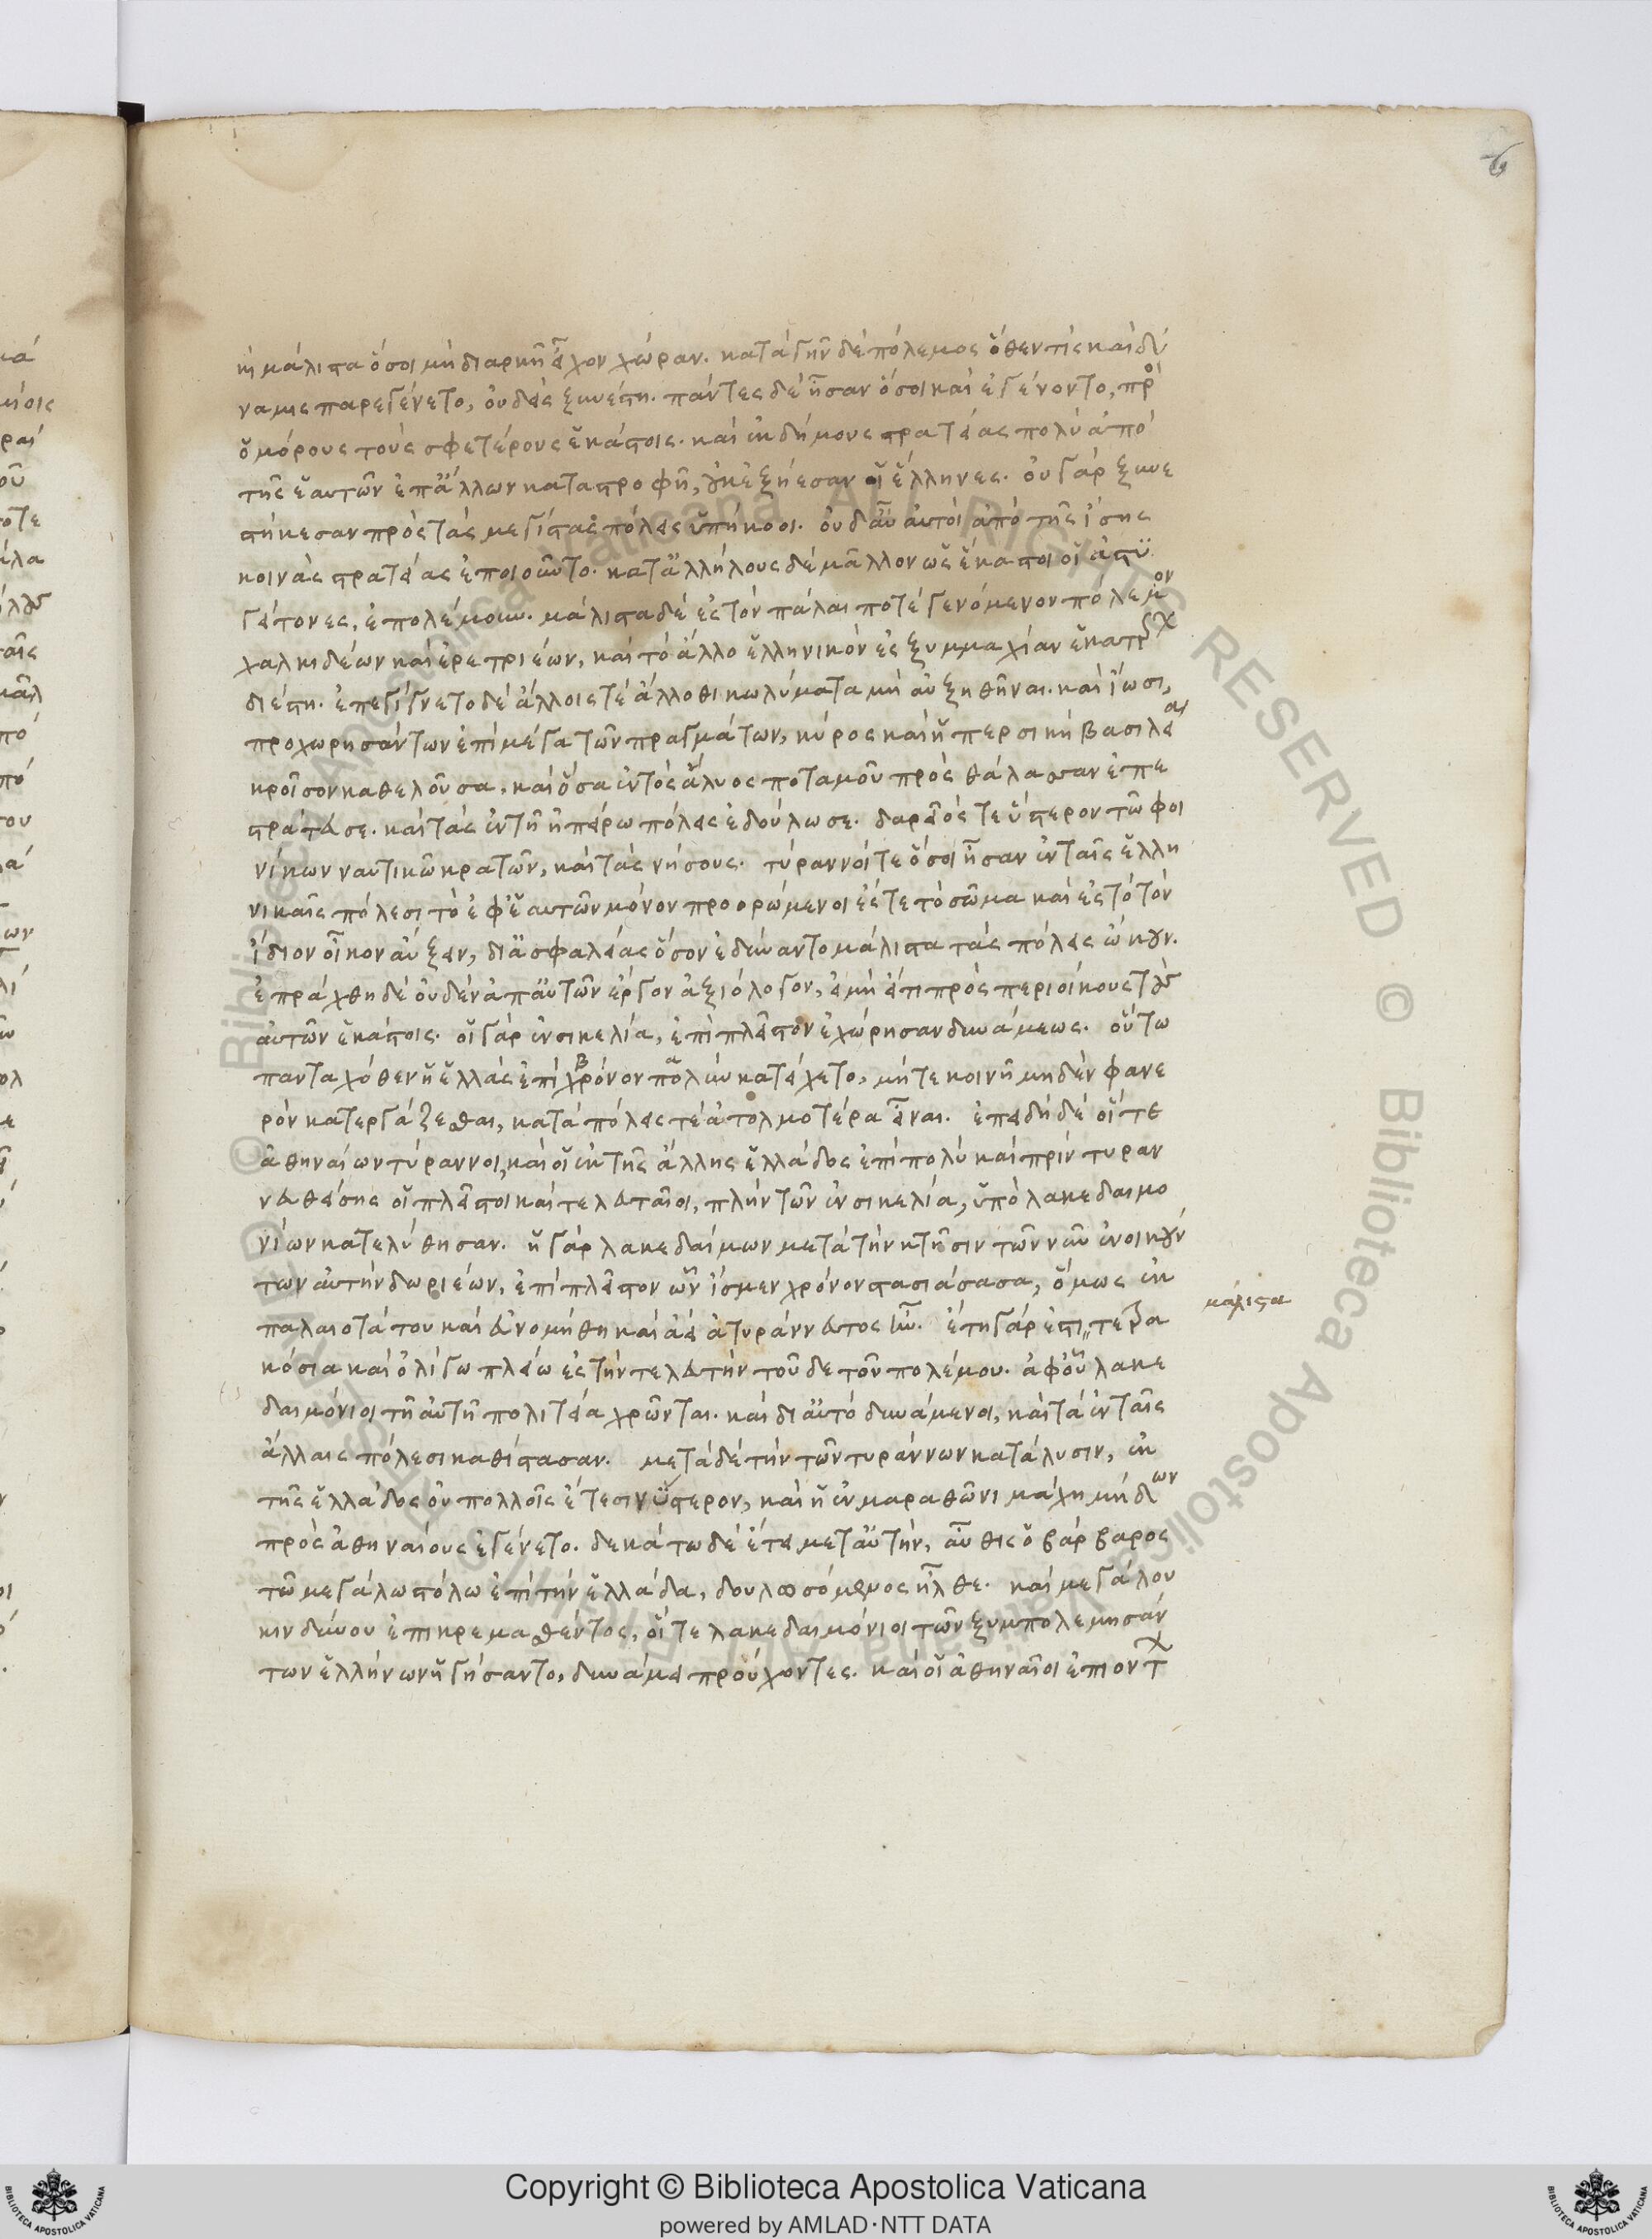 6
κὴ μάλιστα ὅσοι μὴ διαρκῆ εἶχον χώραν. κατὰ γῆν δὲ πόλεμος ὅθεν τίς καὶ δύ
ναμις παρεγένετο, οὐδεὶς ξυνέστη. πάντες δὲ ἦσαν ὅσοι καὶ ἐγένοντο, πρὸ
ὁμόρους τοὺς σφετέρους ἑκάστοις. καὶ ἐκδήμους στρατείας πολὺ ἀπὸ
τῆς ἑαυτῶν ἐπ' ἄλλων καταστροφῆ, οὐκ ἐξήεσαν οἱ ἕλληνες. οὐ γὰρ ξυνε
στήκεσαν πρὸς τὰς μεγίστας πόλεις ὑπήκοοι. οὐδ' αὖ αὐτοὶ ἀπὸ τῆς ἴσης
κοινὰς στρατείας ἐποιοῦντο. κατ' ἀλλήλους δὲ μᾶλλον ὡς ἕκαστοι οἱ ἀστυ
γείτονες, ἐπολέμουν. μάλιστα δὲ ἐς τὸν πάλαι ποτὲ γενόμενον πόλεμον
χαλκιδέων καὶ ἐρετριέων, καὶ τὸ ἄλλο ἑλληνικὸν ἐς ξυμμαχίαν ἑκατέρων
διέστη. ἐπεγίγνετο δὲ ἄλλοις τὲ ἄλλοθι κωλύματα μὴ αὐξηθῆναι. καὶ ἴωσι,
προχωρησάντων ἐπὶ μέγα τῶν πραγμάτων, κύρος καὶ ἡ περσικὴ βασιλεία
κροῖσον καθελοῦσα, καὶ ὅσα ἐντὸς ἅλυος ποταμοῦ πρὸς θάλασσαν ἐπε
στράτευσε. καὶ τὰς ἐν τῆ ἠπείρω πόλεις ἐδούλωσε. δαρεῖός τε ὕστερον τῶ φοι
νίκων ναυτικῶ κρατῶν, καὶ τὰς νήσους. τύραννοί τε ὅσοι ἦσαν ἐν ταῖς ἑλλη
νικαῖς πόλεσι τὸ ἐφ' ἑαυτῶν μόνον προορώμενοι ἔς τε τὸ σῶμα καὶ ἐς τὸ τὸν
ἴδιον οἶκον αὔξειν, δι' ἀσφαλείας ὅσον ἐδύναντο μάλιστα τὰς πόλεις ὤκουν.
ἐπράχθη δὲ οὐδὲν ἀπ' αὐτῶν ἔργον ἀξιόλογον, εἰ μὴ εἴ τι πρὸς περιοίκους τοὺς
αὐτῶν ἑκάστοις. οἱ γὰρ ἐν σικελία, ἐπὶ πλεῖστον ἐχώρησαν δυνάμεως. οὕτω
πανταχόθεν ἡ ἑλλὰς ἐπὶ χρόνον πολὺν κατείχετο, μήτε κοινῆ μηδὲν φανε
ρὸν κατεργάζεσθαι, κατὰ πόλεις τὲ ἀτολμοτέρα εἶναι. ἐπειδὴ δὲ οἵ τε
ἀθηναίων τύραννοι, καὶ οἱ ἐκ τῆς ἄλλης ἑλλάδος ἐπὶ πολὺ καὶ πρὶν τυραν
νευθείσης οἱ πλεῖστοι καὶ τελευταῖοι, πλὴν τῶν ἐν σικελία, ὑπὸ λακεδαιμο
νίων κατελύθησαν. ἡ γὰρ λακεδαίμων μετὰ τὴν κτῆσιν τῶν νῦν ἐνοικούν
των αὐτὴν δωριέων, ἐπὶ πλεῖστον ὧν ἴσμεν χρόνον στασιάσασα, ὅμως ἐκ
παλαιοτάτου καὶ εὐνομήθη καὶ ἀεὶ ἀτυράννευτος ἦν. ἔτη γάρ ἐστι τετρα
μάλιστα
κόσια καὶ ὀλίγω πλείω ἐς τὴν τελευτὴν τοῦδε τοῦ πολέμου. ἀφ' οὗ λακε
δαιμόνιοι τῆ αὐτῆ πολιτεία χρῶνται. καὶ δι' αὐτὸ δυνάμενοι, καὶ τὰ ἐν ταῖς
ἄλλαις πόλεσι καθίστασαν. μετὰ δὲ τὴν τῶν τυράννων κατάλυσιν, ἐκ
τῆς ἑλλάδος οὐ πολλοῖς ἔτεσιν ὕστερον, καὶ ἡ ἐν μαραθῶνι μάχη μήδων
πρὸς ἀθηναίους ἐγένετο. δεκάτω δὲ ἔτει μετ' αὐτὴν, αὖθις ὁ βάρβαρος
τῶ μεγάλω στόλω ἐπὶ τὴν ἑλλάδα, δουλωσόμενος ἦλθε. καὶ μεγάλου
κινδύνου ἐπικρεμασθέντος, οἵ τε λακεδαιμόνιοι τῶν ξυμπολεμησάν
των ἑλλήνων ἡγήσαντο, δυνάμει προύχοντες. καὶ οἱ ἀθηναῖοι ἐπιόντων
© Biblioteca Apostolica Vaticana ALL RIGHTS RESERVED © Biblioteca Apostolica Vaticana ALL RIGHTS RESERVED
Copyright © Biblioteca Apostolica Vaticana
powered by AMLAD·NTT DATA
BIBLIOTECA APOSTOLICA VATICANA
BIBLIOTECA APOSTOLICA VATICANA